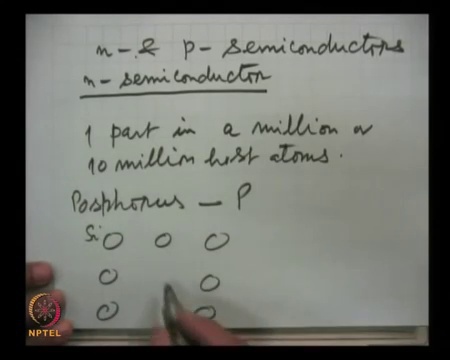 n- & p- semiconductors
n- semiconductor
1 part in a million or
10 million host atoms.
Posphorus — P
Si
NPTEL